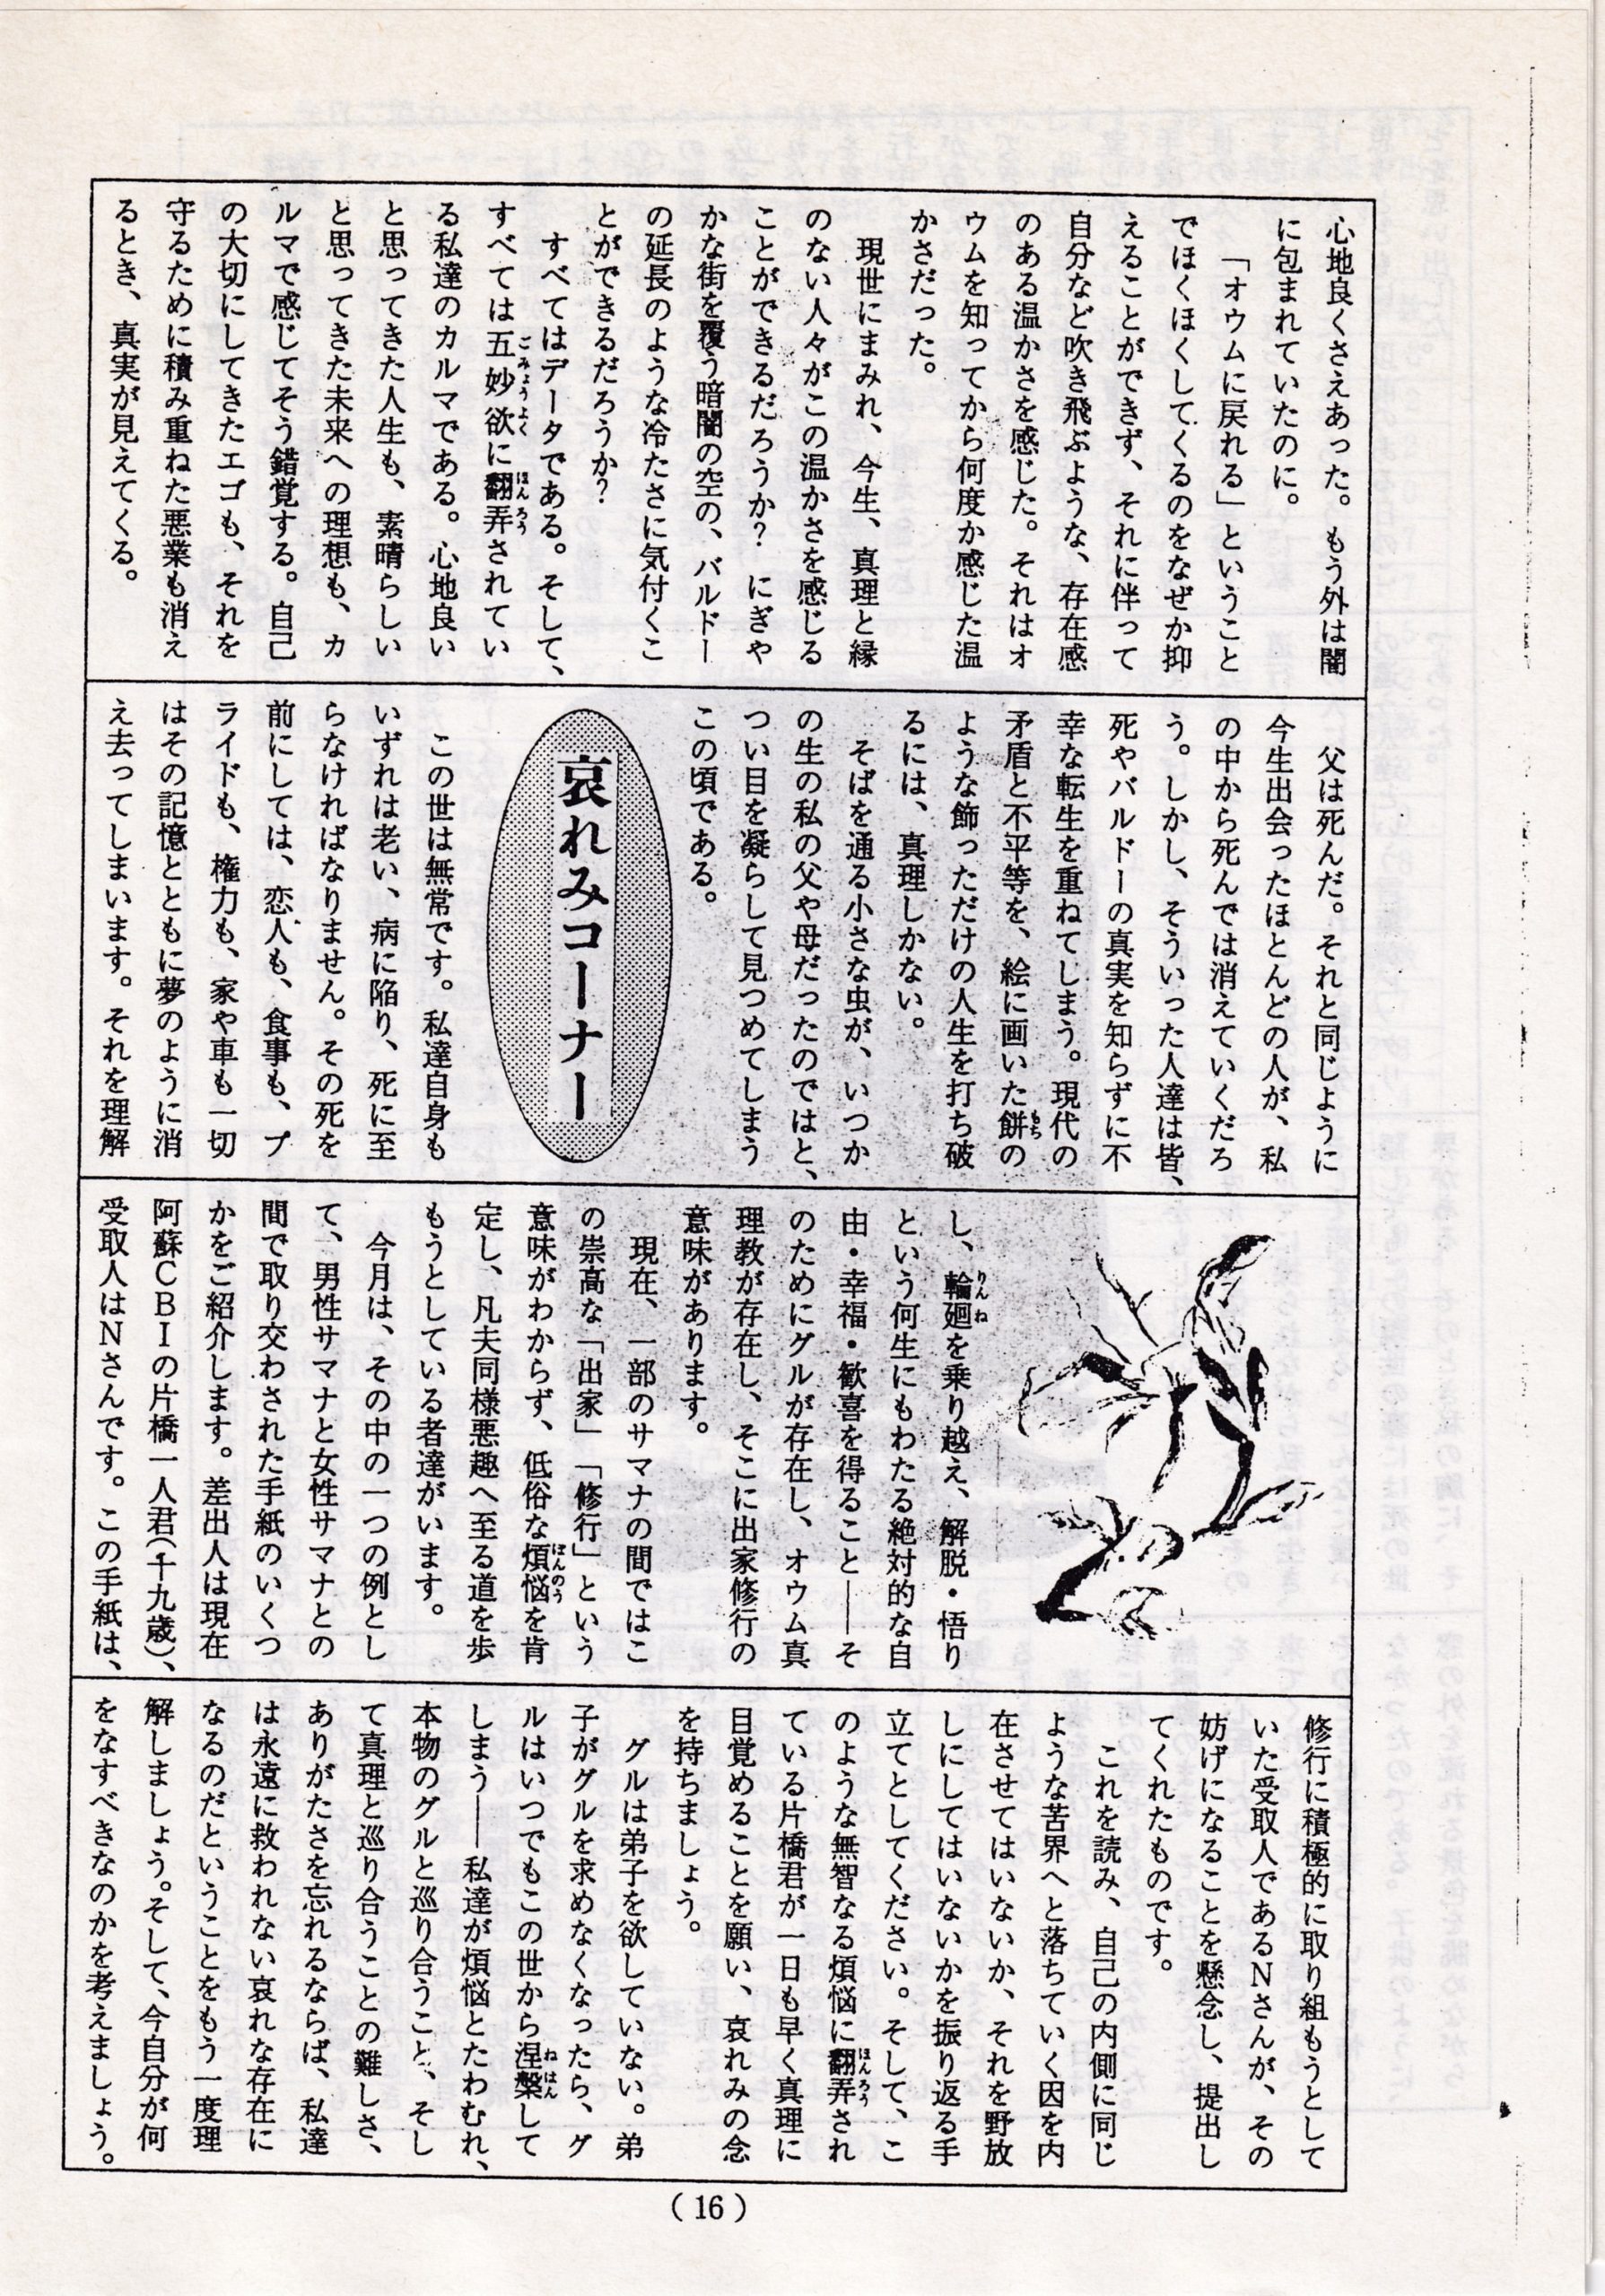 心地良くさえあった。もう外は闇
に包まれていたのに。
「オウムに戻れる」ということ
でほくほくしてくるのをなぜか抑
えることができず、それに伴って
自分など吹き飛ぶような、存在感
のある温かさを感じた。それはオ
ウムを知ってから何度か感じた温
かさだった。
現世にまみれ、今生、真理と縁
のない人々がこの温かさを感じる
ことができるだろうか？ にぎや
かな街を覆う暗闇の空の、バルドー
の延長のような冷たさに気付くこ
とができるだろうか？
すべてはデータである。そして、
すべては五妙欲に翻弄されてい
ごみょうよく
ほんろう
る私達のカルマである。心地良い
と思ってきた人生も、素晴らしい
と思ってきた未来への理想も、カ
ルマで感じてそう錯覚する。自己
の大切にしてきたエゴも、それを
守るために積み重ねた悪業も消え
るとき、真実が見えてくる。
父は死んだ。それと同じように
今生出会ったほとんどの人が、私
の中から死んでは消えていくだろ
う。しかし、そういった人達は皆、
死やバルドーの真実を知らずに不
幸な転生を重ねてしまう。現代の
矛盾と不平等を、絵に画いた餅の
もち
ような飾っただけの人生を打ち破
るには、真理しかない。
そばを通る小さな虫が、いつか
の生の私の父や母だったのではと、
つい目を凝らして見つめてしまう
この頃である。
哀れみコーナー
この世は無常です。私達自身も
いずれは老い、病に陥り、死に至
らなければなりません。その死を
前にしては、恋人も、食事も、プ
ライドも、権力も、家や車も一切
はその記憶とともに夢のように消
え去ってしまいます。それを理解
し、輪廻を乗り越え、解脱・悟り
りんね
という何生にもわたる絶対的な自
由・幸福・歓喜を得ること――そ
のためにグルが存在し、オウム真
理教が存在し、そこに出家修行の
意味があります。
現在、一部のサマナの間ではこ
の崇高な「出家」「修行」という
意味がわからず、低俗な煩悩を肯
ぼんのう
定し、凡夫同様悪趣へ至る道を歩
もうとしている者達がいます。
今月は、その中の一つの例とし
て、男性サマナと女性サマナとの
間で取り交わされた手紙のいくつ
かをご紹介します。差出人は現在
阿蘇ＣＢＩの片橋一人君（十九歳）、
受取人はＮさんです。この手紙は、
修行に積極的に取り組もうとして
いた受取人であるＮさんが、その
妨げになることを懸念し、提出し
てくれたものです。
これを読み、自己の内側に同じ
ような苦界へと落ちていく因を内
在させてはいないか、それを野放
しにしてはいないかを振り返る手
立てとしてください。そして、こ
のような無智なる煩悩に翻弄され
ほんろう
ている片橋君が一日も早く真理に
目覚めることを願い、哀れみの念
を持ちましょう。
グルは弟子を欲していない。弟
子がグルを求めなくなったら、グ
ルはいつでもこの世から涅槃して
ねはん
しまう――私達が煩悩とたわむれ、
本物のグルと巡り合うこと、そし
て真理と巡り合うことの難しさ、
ありがたさを忘れるならば、私達
は永遠に救われない哀れな存在に
なるのだということをもう一度理
解しましょう。そして、今自分が何
をなすべきなのかを考えましょう。
（16）